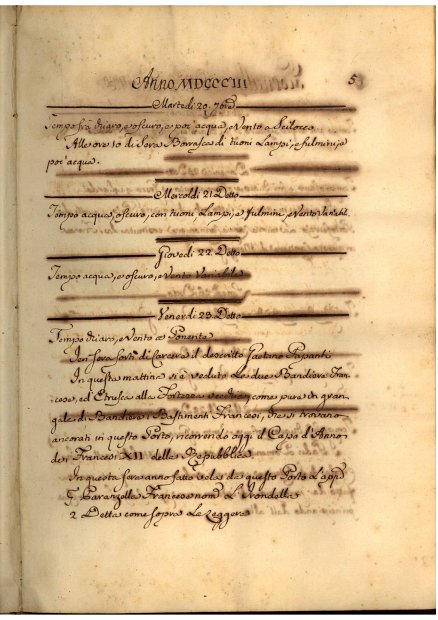 Anno MDCCCIII
5
Martedi 20. 7bre
Tempo frà chiaro, e oscuro, e poi acqua, e Vento a Scilocco
Alle ore 10 di Sera Borrasca di tuoni Lampi, e fulmini, e
poi acqua.
Mercoldi 21 Detto
Tempo acqua, oscuro, con tuoni, Lampi, e fulmini, e Vento Variabil.
Giovedi 22 Detto
Tempo acqua, e oscuro, e Vento Variabile
Venerdi 23 Detto
Tempo chiaro, e Vento a Ponente
Jeri sera sortì di Carcere il descritto Gaetano Papanti
In questa mattina si è veduto le due Bandiere Fran-
cese, ed Etrusca alla Fortezza vecchia, come pure di gran-
gale di Bandiere i Bastimenti Francesi, che si trovano
ancorati in questo Porto, ricorrendo oggi il Capo d'Anno
dei Francesi XII della Repubblica
In questa sera anno fatto vela da questo Porto L'app.e
Paranzella Francese nom.a L'Irondella
2 Detta come sopra La Leggera